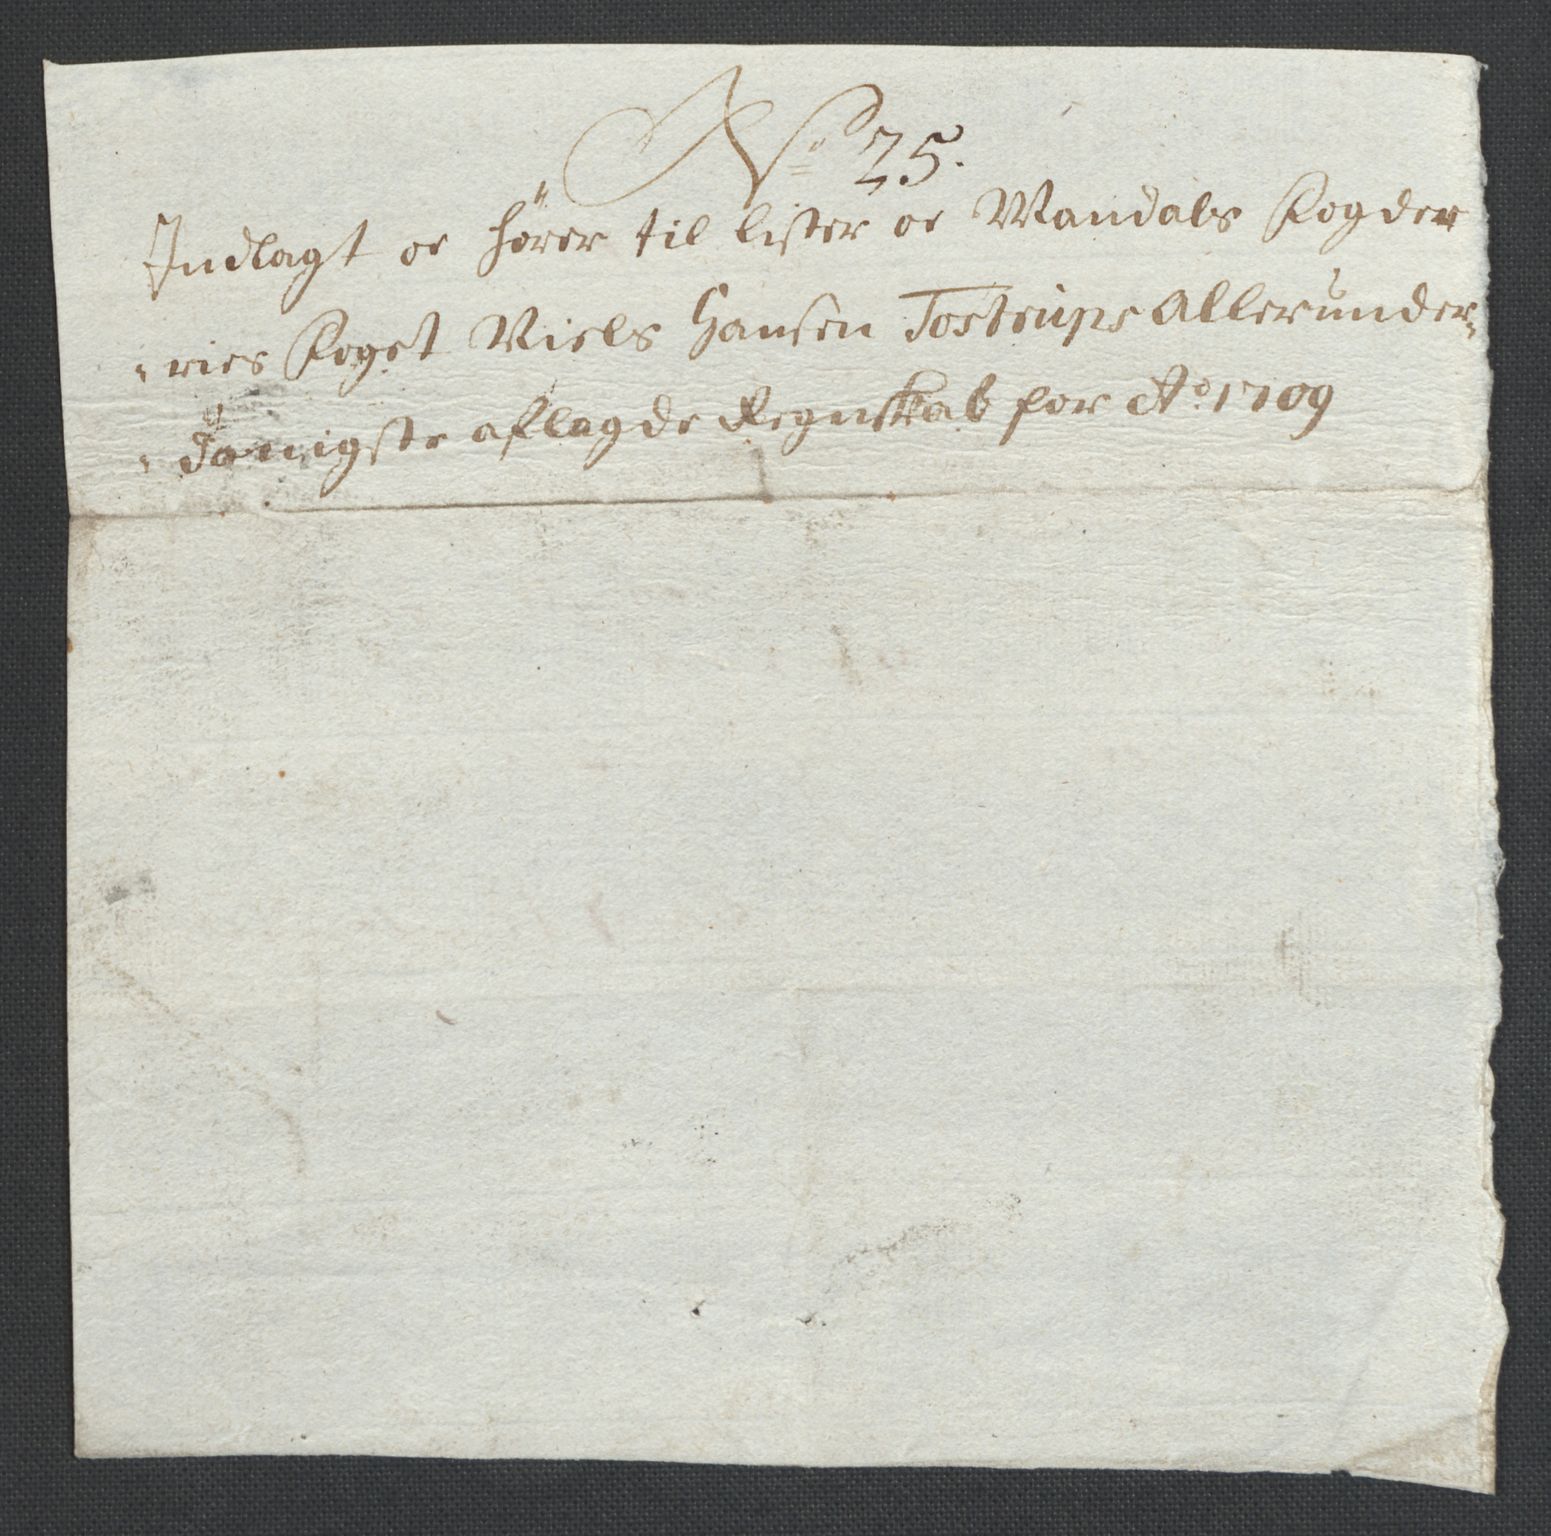 No 25.
Indlagt oc hörer til Lister oc Mandals Fogder
ries Foget Niels Hansen Tostrups Allerunder
danigste aflagde Regnskab for Ao 1709